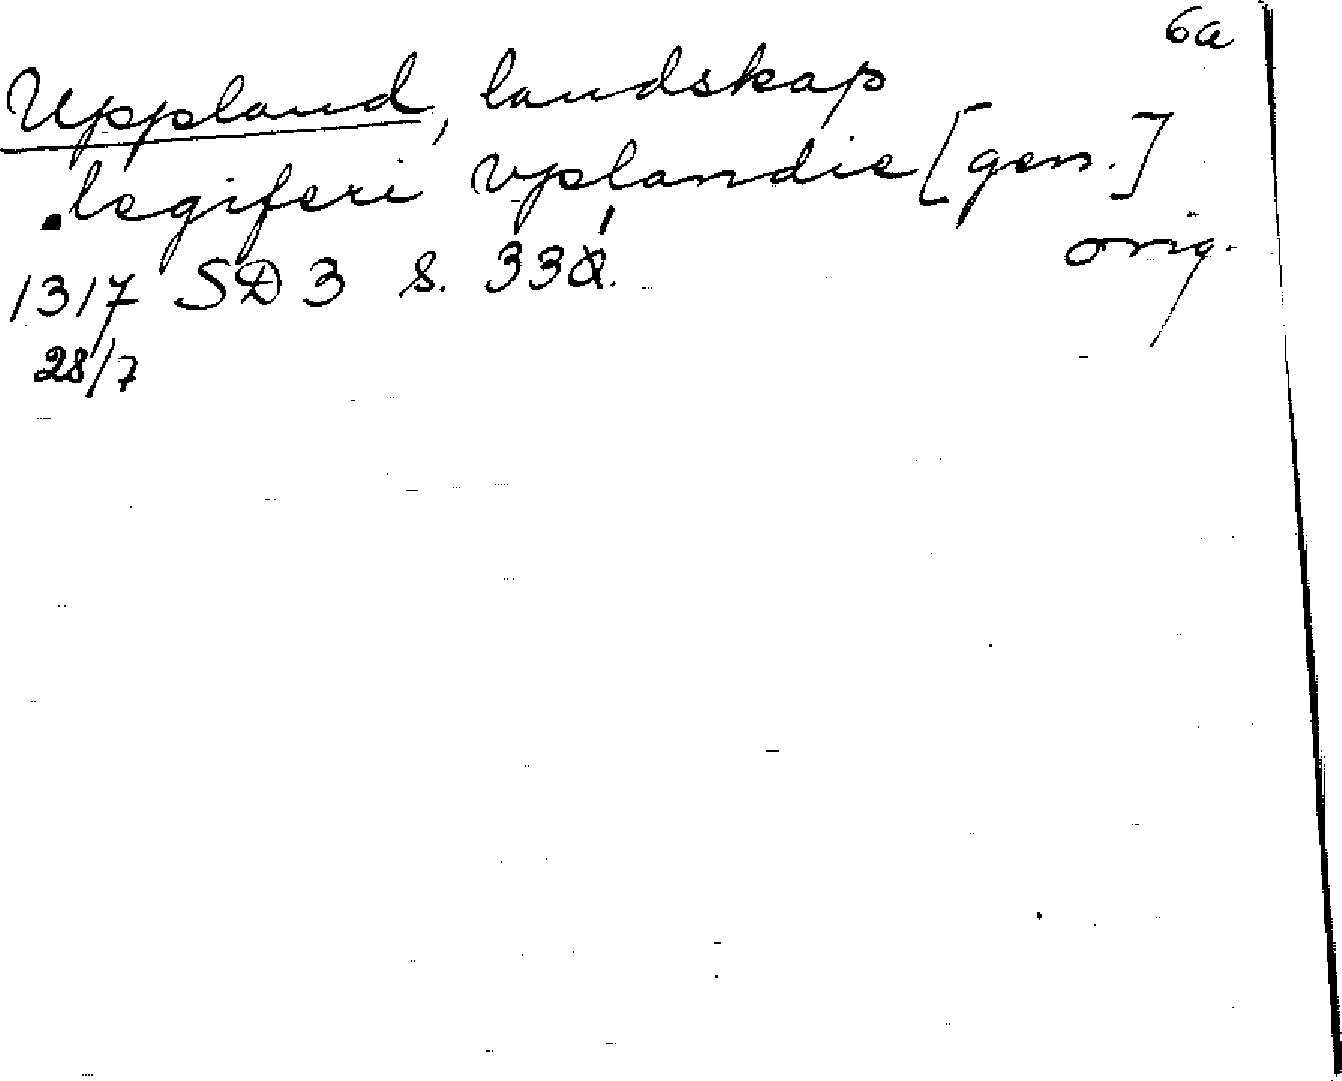 6a
Uppland, landskap
legiferi vplandie [gen.]
orig.
1317 SD 3 s. 331.
28/7